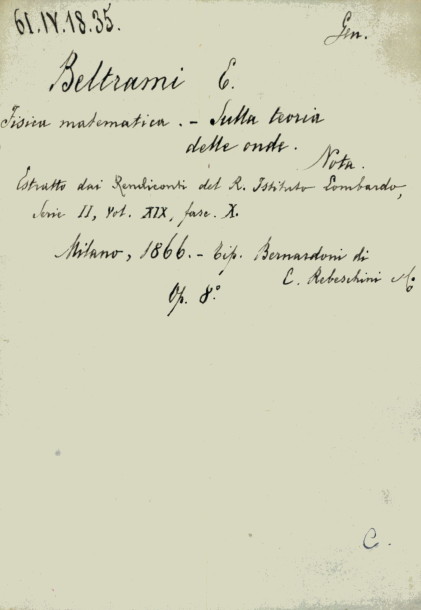 61.IV.18.35.
Gen.
Beltrami E.
Fisica matematica. - Sulla teoria
delle onde.
Nota.
Estratto dai Rendiconti del R. Istituto Lombardo,
Serie II, Vol. XIX, fasc. X.
Milano, 1866. - Tip. Bernardoni di
C. Rebeschini
Op. 8°
C.